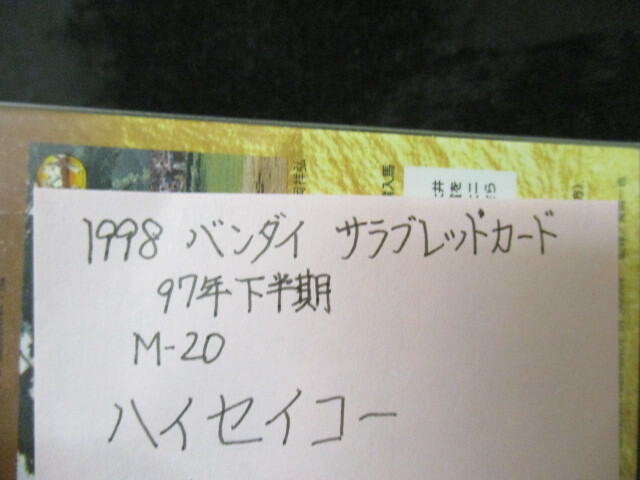 1998 バンダイ サラブレッドカード
97年下半期
M-20
ハイセイコー